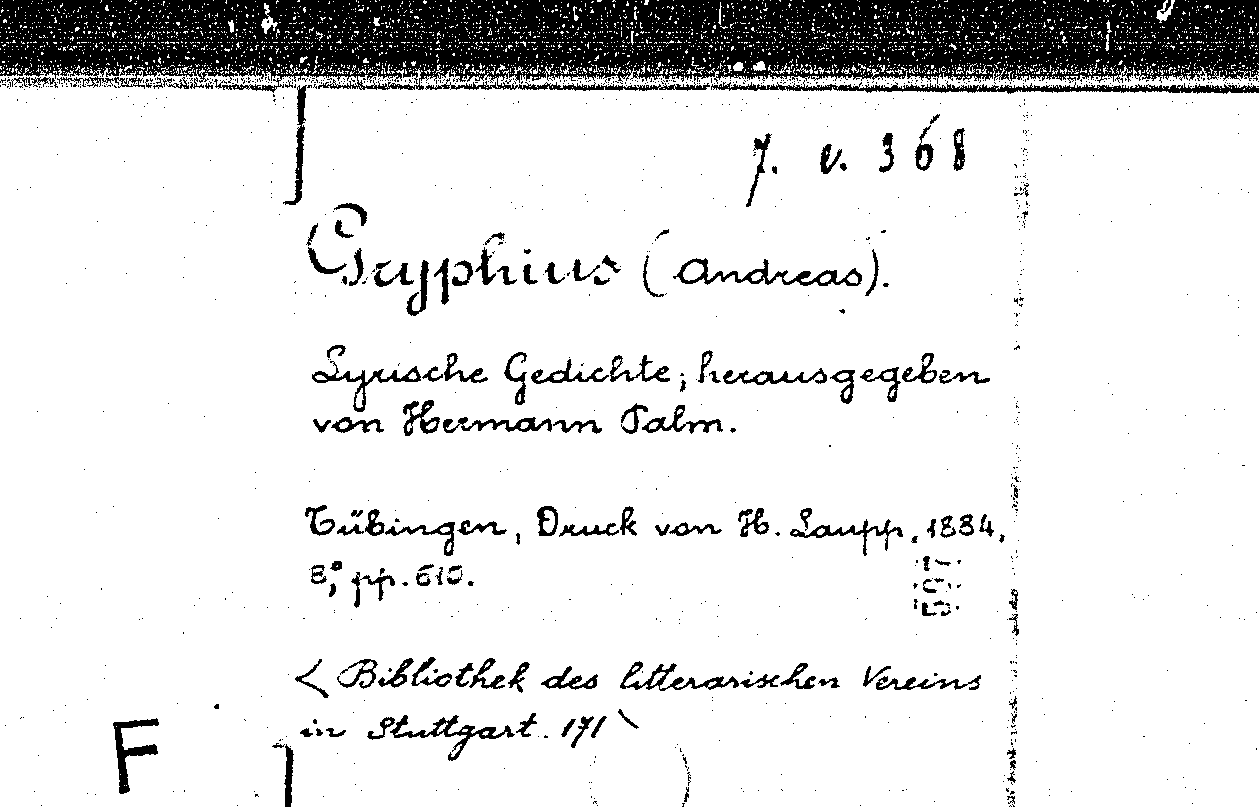 7. v. 368
Gryphius (Andreas).
Lyrische Gedichte; herausgegeben
von Hermann Palm.
Tübingen, Druck von H. Laupp, 1884,
8°, pp. 610.
597
< Bibliothek des litterarischen Vereins
in Stuttgart. 171 \
F